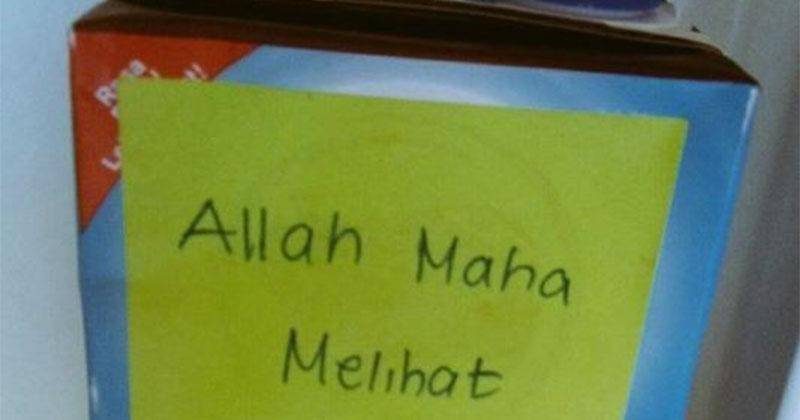 Allah Maha
Melihat